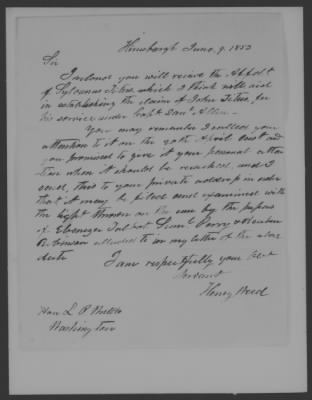 Hinesburgh June 9. 1853
Sir
Inclosed you will recive the Affdt
of Sylvanus Titus which I think will aid
in establishing the claim of John Titus, for
his service under Capt Danl Allen.
You may remember I called your
attention to it on the 20th April last and
you promised to give it your personal atten
tion when it should be reached, and I
send, this to your private address in order
that it may be filed and examined with
the light thrown on the case by the papers
of Ebenezer Saml Perry & Reuben
alluded to in my letter of the
date
I am respectfully your Obt
Servant
Henry Weed
Hon L P
Washington